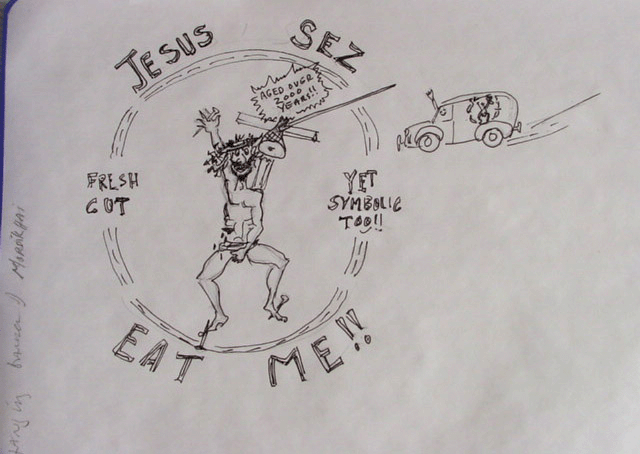 JESUS SEZ
AGED OVER
2000
YEARS!!
FRESH
CUT
YET
SYMBOLIC
TOO!!
EAT ME!!